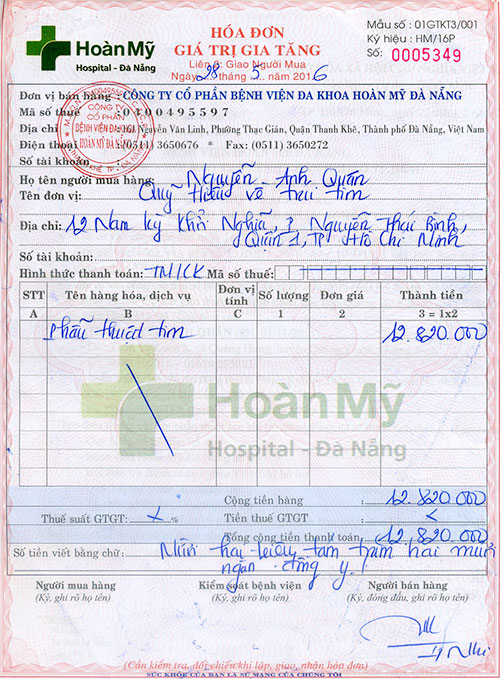 HoànMỹ
Hospital - Đà Nẵng
HÓA ĐƠN
GIÁ TRỊ GIA TĂNG
Liên 2: Giao Người Mua
Ngày 28 tháng 5 năm 2016
Mẫu số : 01GTKT3/001
Ký hiệu : HM/16P
Số: 0005349
Đơn vị bán hàng : CÔNG TY CỔ PHẦN BỆNH VIỆN ĐA KHOA HOÀN MỸ ĐÀ NẴNG
Mã số thuế : 0400495597
Địa chỉ : 161 Nguyễn Văn Linh, Phường Thạc Gián, Quận Thanh Khê, Thành phố Đà Nẵng, Việt Nam
Điện thoại : (0511) 3650676 * Fax: (0511) 3650272
Số tài khoản :
CÔNG TY
CỔ PHẦN
BỆNH VIỆN ĐA KHOA
HOÀN MỸ ĐÀ NẴNG
Họ tên người mua hàng: Nguyễn Anh Quân
Tên đơn vị: Quỹ Hiểu về trái tim
Địa chỉ: 12 Nam Kỳ Khởi Nghĩa, P Nguyễn Thái Bình,
Quận 1, TP Hồ Chí Minh
Số tài khoản:
Hình thức thanh toán: TM/CK Mã số thuế:
STT Tên hàng hóa, dịch vụ Đơn vị tính Số lượng Đơn giá Thành tiền
A B C 1 2 3 = 1x2
Phẫu thuật tim 12.820.000
HoànMỹ
Hospital - Đà Nẵng
Cộng tiền hàng : 12.820.000
Thuế suất GTGT: x % Tiền thuế GTGT : x
Tổng cộng tiền thanh toán: 12.820.000
Số tiền viết bằng chữ: Mười hai triệu tám trăm hai mươi
ngàn đồng y!
Người mua hàng Kiểm soát bệnh viện Người bán hàng
(Ký, ghi rõ họ tên) (Ký, ghi rõ họ tên) (Ký, đóng dấu, ghi rõ họ tên)
(Cần kiểm tra, đối chiếu khi lập, giao, nhận hóa đơn)
SỨC KHỎE CỦA BẠN LÀ SỨ MẠNG CỦA CHÚNG TÔI